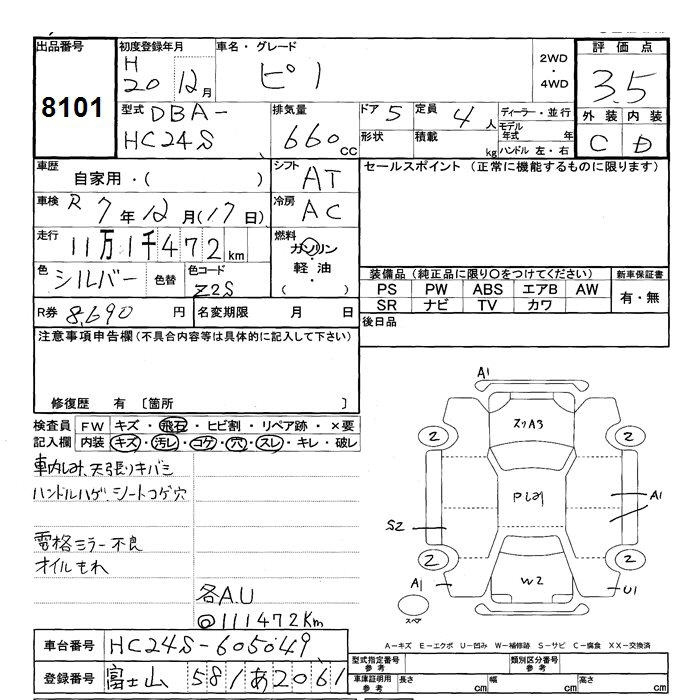 出品番号
8101
初度登録年月
H
20 12月
車名・グレード
ピノ
2WD
・
4WD
評価点
3.5
外装 内装
C D
型式 DBA-
HC24S
排気量
660 cc
ドア 5
定員 4 人
形状
積載 kg
ディーラー・並行
モデル
年式 年
ハンドル 左・右
車歴
自家用・( )
シフト AT
セールスポイント (正常に機能するものに限ります)
車検 R 7年12月(17日)
冷房 AC
走行 11万1千472km
燃料
ガソリン
・
軽油
( )
色 シルバー 色替
色コード
Z2S
装備品 (純正品に限り○をつけてください)
PS PW ABS エアB AW
SR ナビ TV カワ
新車保証書
有・無
R券 8,690 円
名変期限 月 日
後日品
注意事項申告欄(不具合内容等は具体的に記入して下さい)
修復歴 有 〔箇所 〕
検査員 FW キズ・飛石・ヒビ割・リペア跡・×要
記入欄 内装 キズ・汚レ・コゲ・穴・スレ・キレ・破レ
車内しみ、天張りキバミ
ハンドルハゲ、シートコゲ穴
電格ミラー不良
オイルもれ
各A.U
@111472Km
A1
スリA3
2
2
Pin
A1
S2
2
2
A1
W2
U1
スペア
A-キズ E-エクボ U-凹み W-補修跡 S-サビ C-腐食 XX-交換済
車台番号 HC24S-605049
登録番号 富士山 581 あ 2061
型式指定番号
参考
類別区分番号
参考
車庫証明用
参考
長さ cm
幅 cm
高さ cm